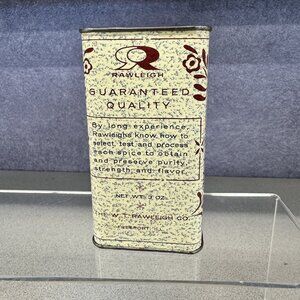 RAWLEIGH
GUARANTEED
QUALITY
By long experience,
Rawleighs know how to
select, test and process
each spice to obtain
and preserve purity,
strength and flavor.
NET WT. 3 OZ.
THE W. T. RAWLEIGH CO.
FREEPORT, ILL.